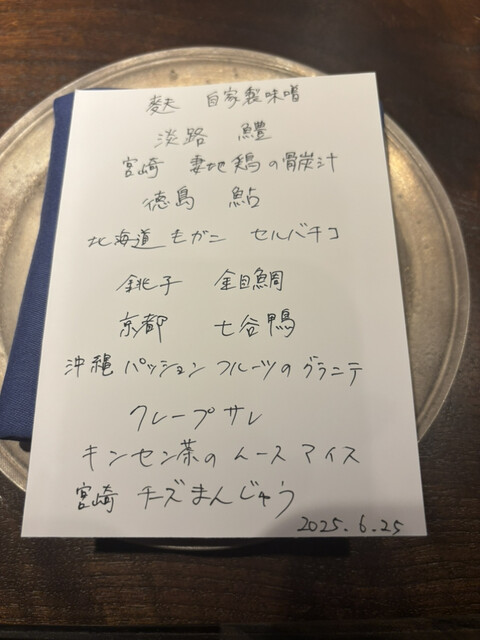 麩　自家製味噌
淡路　鱧
宮崎　妻地鶏の骨炭汁
徳島　鮎
北海道 毛ガニ　セルバチコ
銚子　金目鯛
京都　七谷鴨
沖縄 パッション フルーツの グラニテ
クレープ サレ
キンセン茶の ムース アイス
宮崎 チズまんじゅう
2025.6.25